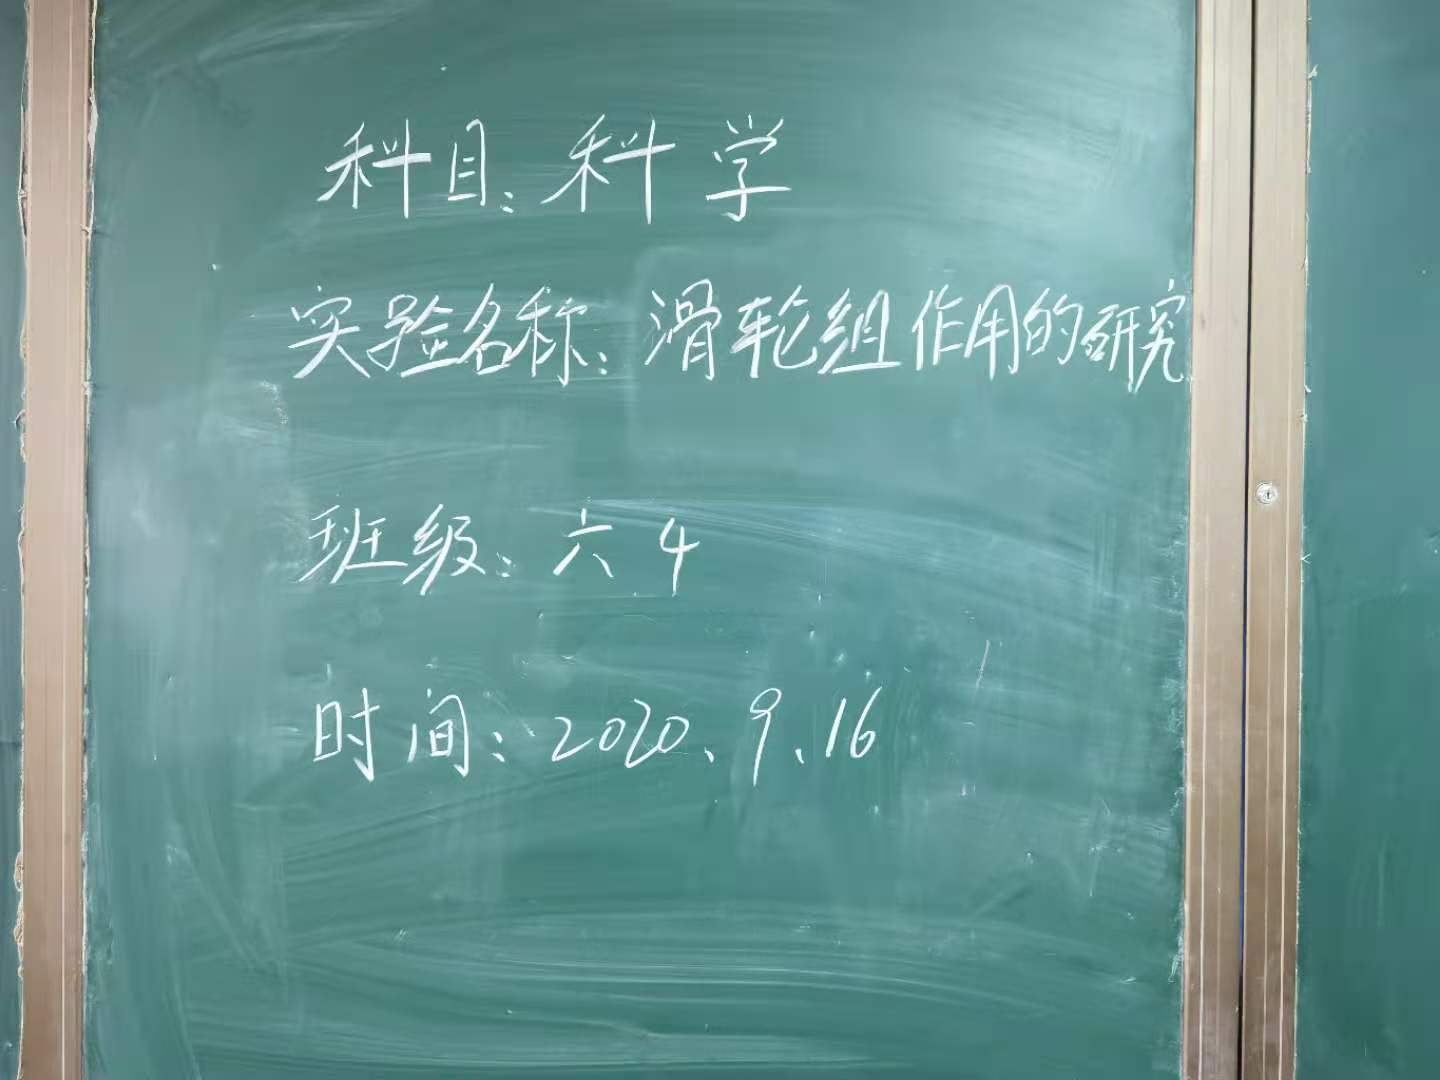 科目：科学
实验名称：滑轮组作用的研究
班级：六4
时间：2020、9、16